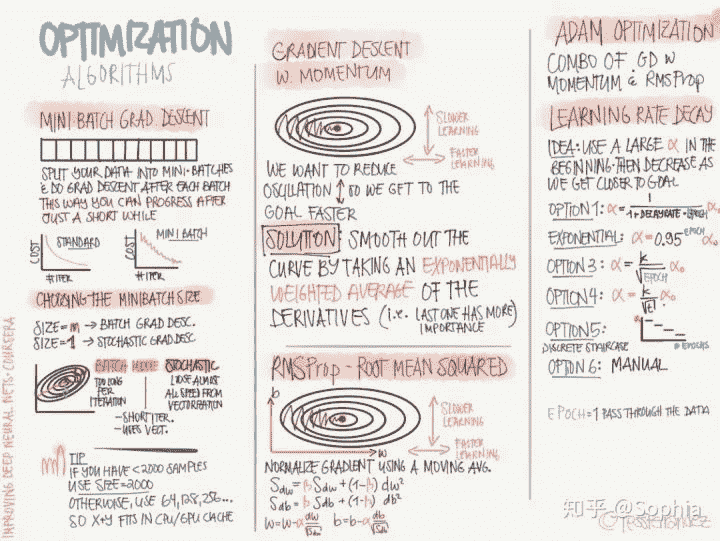 OPTIMIZATION
ALGORITHMS
MINI-BATCH GRAD DESCENT
SPLIT YOUR DATA INTO MINI-BATCHES
& DO GRAD DESCENT AFTER EACH BATCH
THIS WAY YOU CAN PROGRESS AFTER
JUST A SHORT WHILE
COST
STANDARD
# ITER
COST
MINI BATCH
# ITER
CHOOSING THE MINIBATCH SIZE
SIZE=m → BATCH GRAD DESC.
SIZE=1 → STOCHASTIC GRAD DESC.
BATCH
TOO LONG
PER
ITERATION
STOCHASTIC
LOSE ALMOST
ALL SPEED FROM
VECTORIZATION
- SHORT ITER.
- USES VECT.
TIP
IF YOU HAVE <2000 SAMPLES
USE SIZE=2000
OTHERWISE, USE 64,128,256...
SO X+Y FITS IN CPU/GPU CACHE
IMPROVING DEEP NEURAL NETS · COURSERA
GRADIENT DESCENT
W. MOMENTUM
SLOWER
LEARNING
FASTER
LEARNING
WE WANT TO REDUCE
OSCILLATION ↕ SO WE GET TO THE
GOAL FASTER
SOLUTION: SMOOTH OUT THE
CURVE BY TAKING AN EXPONENTIALLY
WEIGHTED AVERAGE OF THE
DERIVATIVES (i.e. LAST ONE HAS MORE)
IMPORTANCE
RMSProp - ROOT MEAN SQUARED
b
SLOWER
LEARNING
W
FASTER
LEARNING
NORMALIZE GRADIENT USING A MOVING AVG.
Sdw = β Sdw + (1-β) dw²
Sdb = β Sdb + (1-β) db²
w=w-α dw/√Sdw b=b-α db/√Sdb
ADAM OPTIMIZATION
COMBO OF GD W
MOMENTUM & RMSProp
LEARNING RATE DECAY
IDEA: USE A LARGE α IN THE
BEGINNING. THEN DECREASE AS
WE GET CLOSER TO GOAL
OPTION 1: α = 1/(1+DECAYRATE·EPOCH) α₀
EXPONENTIAL: α = 0.95^EPOCH α₀
OPTION 3: α = k/√EPOCH α₀
OPTION 4: α = k/√t α₀
OPTION 5:
DISCRETE STAIRCASE
EPOCHS
OPTION 6: MANUAL
EPOCH = 1 PASS THROUGH THE DATA
知乎 @Sophia